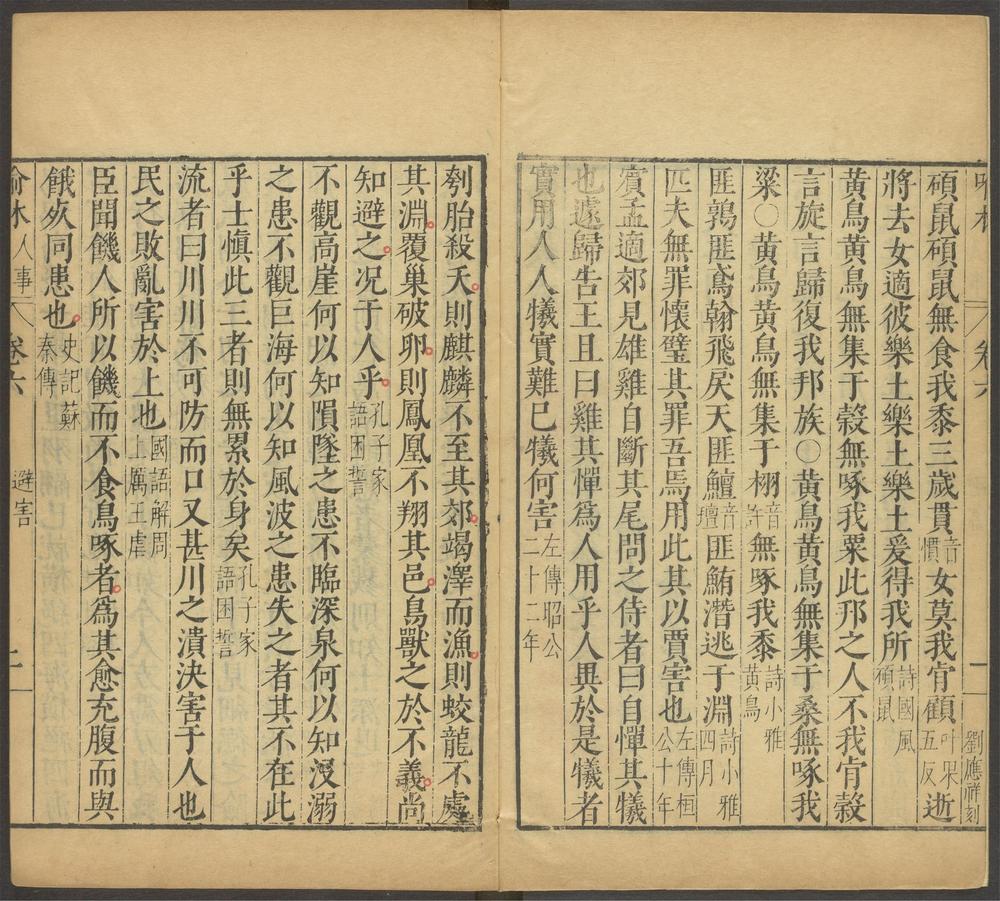 劉應祥刻
碩鼠碩鼠無食我黍三歲貫音慣女莫我肯顧叶果五反逝
將去女適彼樂土樂土樂土爰得我所詩國風碩鼠
黃鳥黃鳥無集于榖無啄我粟此邦之人不我肯榖
言旋言歸復我邦族〇黃鳥黃鳥無集于桑無啄我
粱〇黃鳥黃鳥無集于栩音許無啄我黍詩小雅黃鳥
匪鶉匪鳶翰飛戾天匪鱣音壇匪鮪潛逃于淵詩小雅四月
匹夫無罪懷璧其罪吾焉用此其以賈害也左傳桓公十年
賔孟適郊見雄雞自斷其尾問之侍者曰自憚其犧
也遽歸告王且曰雞其憚爲人用乎人異於是犧者
實用人人犧實難已犧何害左傳昭公二十二年
刳胎殺夭則麒麟不至其郊竭澤而漁則蛟龍不處
其淵覆巢破卵則鳳凰不翔其邑鳥獸之於不義尚
知避之况于人乎孔子家語困誓
不觀高崖何以知隕墜之患不臨深泉何以知沒溺
之患不觀巨海何以知風波之患失之者其不在此
乎士愼此三者則無累於身矣孔子家語困誓
流者曰川川不可防而口又甚川之潰決害于人也
民之敗亂害於上也國語解周上厲王虐
臣聞饑人所以饑而不食烏啄者爲其愈充腹而與
餓死同患也史記蘇秦傳
喻林人事 卷六 避害 二